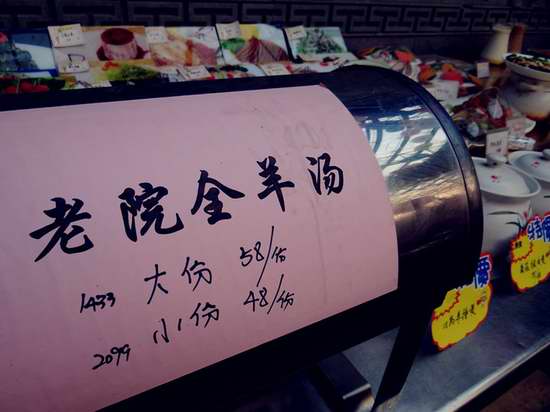 老院全羊汤
1433 大份 58/份
2099 小份 48/份
特價